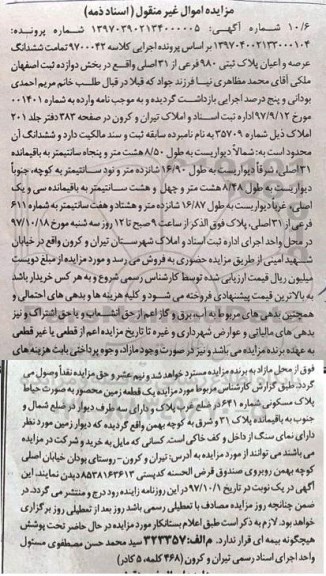 مزایده اموال غیر منقول ( اسناد ذمه)
۱۰/۶ شماره آگهی: ۱۳۹۷۰۳۹۰۲۱۳۴۰۰۰۰۰۵ شماره پرونده:
۱۳۹۷۰۴۰۰۲۱۳۳۰۰۰۱۰۴ بر اساس پرونده اجرایی کلاسه ۹۷۰۰۰۴۲ تمامت ششدانگ
عرصه و اعیان پلاک ثبتی ۹۸۰ فرعی از ۳۱ اصلی واقع در بخش دوازده ثبت اصفهان
ملکی آقای محمد مظاهری نیا فرزند جواد که قبلا در قبال طلب خانم مریم احمدی
بودانی و پنج درصد اجرایی بازداشت گردیده و به موجب نامه وارده به شماره ۰۰۱۴۰۱
مورخ ۹۷/۹/۱۲ اداره ثبت اسناد و املاک تیران و کرون در صفحه ۳۸۳ دفتر جلد ۲۰۱
املاک ذیل شماره ۳۵۷۰۹ به نام نامبرده سابقه ثبت و سند مالکیت دارد و ششدانگ آن
محدود است به: شمالاً دیواریست به طول ۸/۵۰ هشت متر و پنجاه سانتیمتر به باقیمانده
۳۱ اصلی، شرقاً دیواریست به طول ۱۶/۹۰ شانزده متر و نود سانتیمتر به کوچه، جنوباً
دیواریست به طول ۸/۴۸ هشت متر و چهل و هشت سانتیمتر به باقیمانده سی و یک
اصلی، غرباً دیواریست به طول ۱۶/۸۷ شانزده متر و هشتاد و هفت سانتیمتر به شماره ۶۱۱
فرعی از ۳۱ اصلی، پلاک فوق الذکر از ساعت ۹ صبح تا ۱۲ روز سه شنبه مورخ ۹۷/۱۰/۱۸
در محل واحد اجرای اداره ثبت اسناد و املاک شهرستان تیران و کرون واقع در خیابان
شهید امینی از طریق مزایده حضوری به فروش می رسد و مورد مزایده از مبلغ دویست
میلیون ریال قیمت ارزیابی شده توسط کارشناس رسمی شروع و به هر کس خریدار باشد
به بالاترین قیمت پیشنهادی فروخته می شود و کلیه هزینه ها و بدهی های احتمالی و
همچنین بدهی های مربوط به آب، برق و گاز اعم از حق انشعاب و یا حق اشتراک و نیز
بدهی های مالیاتی و عوارض شهرداری و غیره تا تاریخ مزایده اعم از قطعی یا غیر قطعی
به عهده برنده مزایده می باشد و نیز در صورت وجود مازاد، وجوه پرداختی بابت هزینه های
فوق از محل مازاد به برنده مزایده مسترد خواهد شد و نیم عشر و حق مزایده نقداً وصول می
گردد. طبق گزارش کارشناس مربوط مورد مزایده یک قطعه زمین محصور به صورت حیاط
پلاک مسکونی شماره ۶۴۱ در ضلع غرب پلاک و دارای سه طرف دیوار در ضلع شمال و
جنوب به باقیمانده پلاک ۳۱ و شرق به کوچه بهمن واقع گردیده که دیوار زمین مورد نظر
دارای نمای سنگ از داخل و کف خاکی است. کسانی که مایل به خرید و شرکت در مزایده
می باشند می توانند از مورد مزایده به آدرس: تیران و کرون- روستای بودان خیابان اصلی
کوچه بهمن روبروی صندوق قرض الحسنه کدپستی ۸۵۳۸۱۶۳۶۱۳ دیدن نمایند. این
آگهی در یک نوبت در تاریخ ۹۷/۱۰/۱ در این روزنامه زاینده رود درج و منتشر می گردد. در
ضمن چنانچه روز مزایده مصادف با تعطیلی رسمی باشد روز بعد از تعطیلی روز برگزاری
خواهد بود. لازم به ذکر است طبق اعلام بستانکار مورد مزایده در حال حاضر تحت پوشش
هیچگونه بیمه ای قرار ندارد. م الف: ۳۲۳۳۵۷ سید محمد حسن مصطفوی مسئول
واحد اجرای اسناد رسمی تیران و کرون (۴۶۸ کلمه، ۵ کادر)